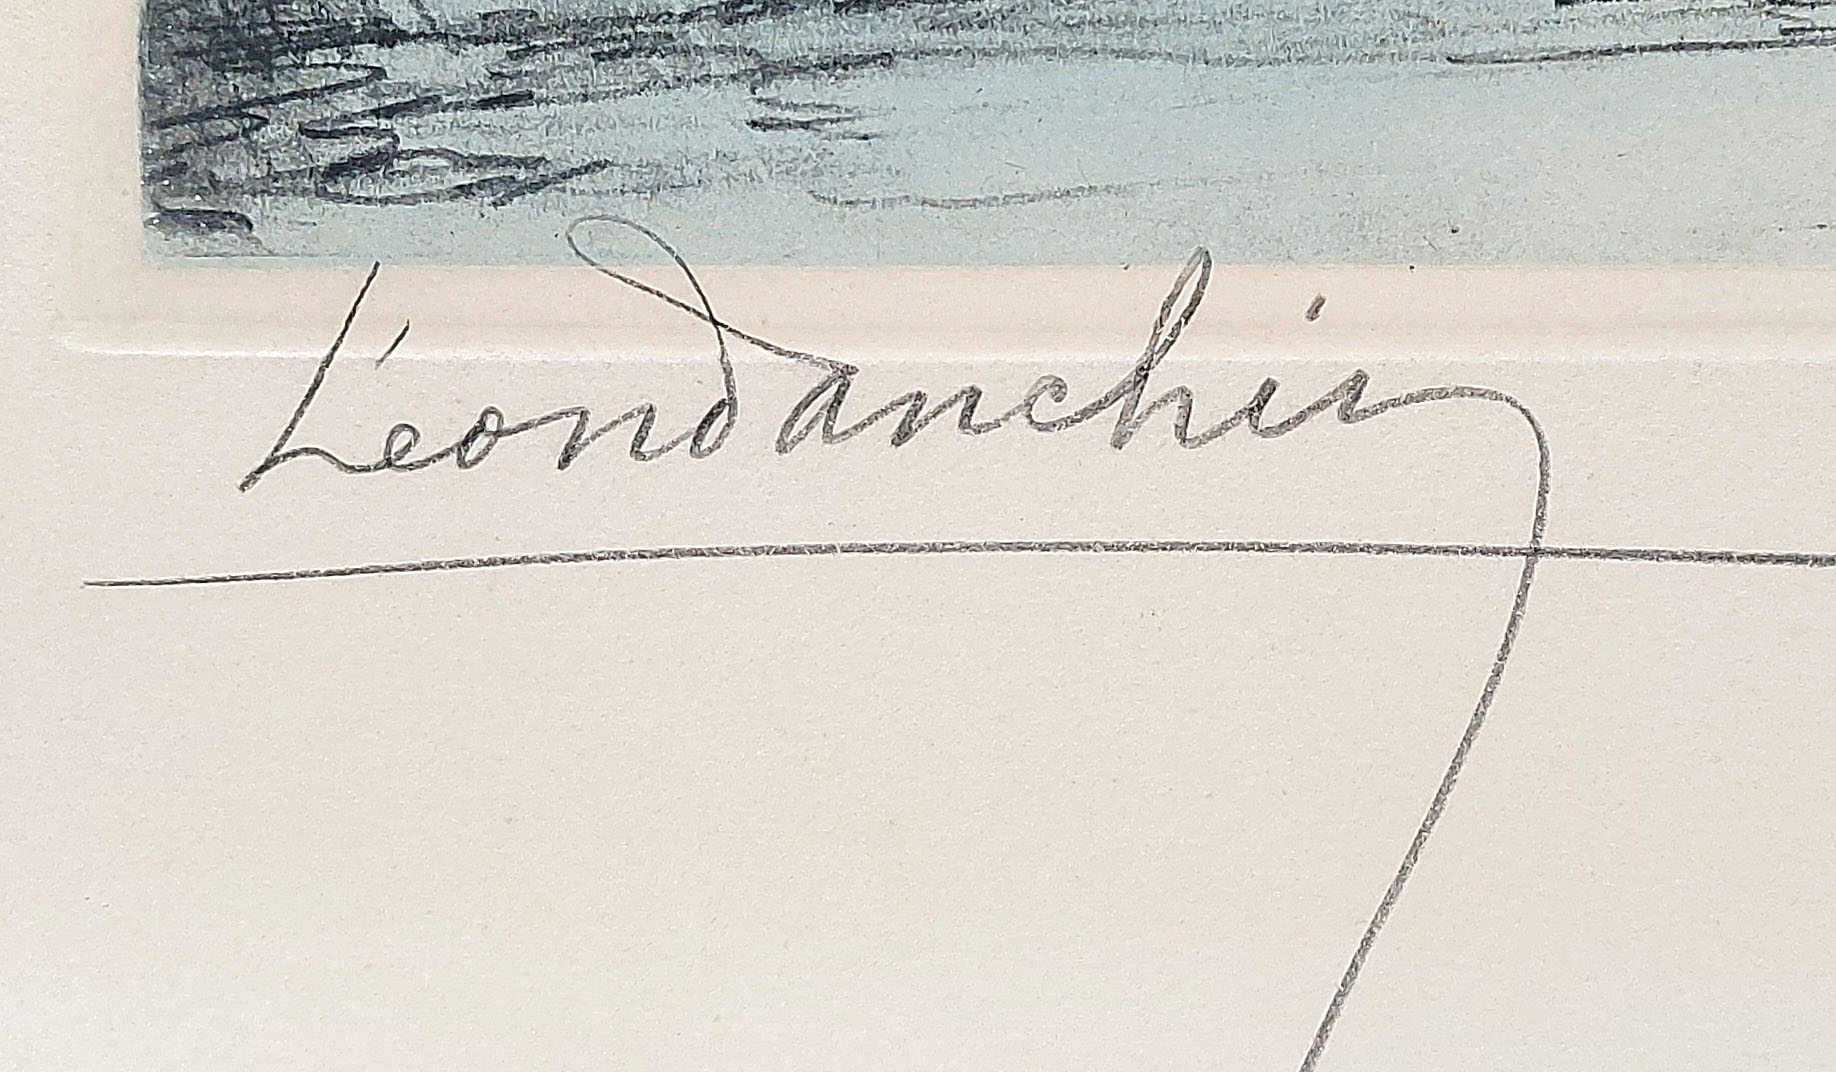 LéonDanchin